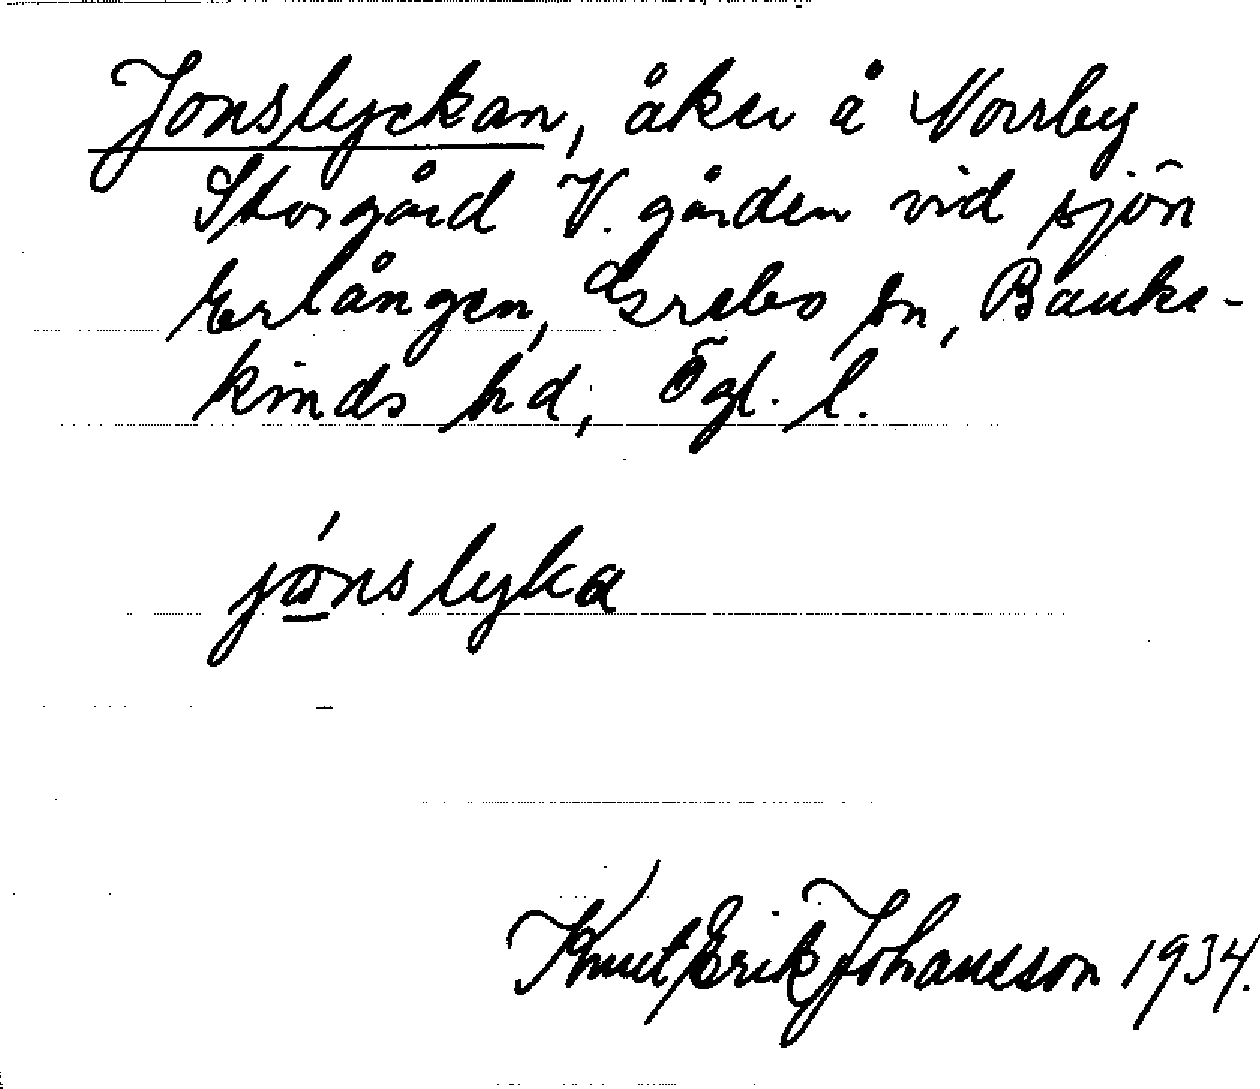 Jonslyckan, åker å Norrby
Storgård V. gården vid sjön
Erlången, Grebo sn, Banke-
kinds hd, Ögl. l.
jónslyka
Knut Erik Johansson 1934.